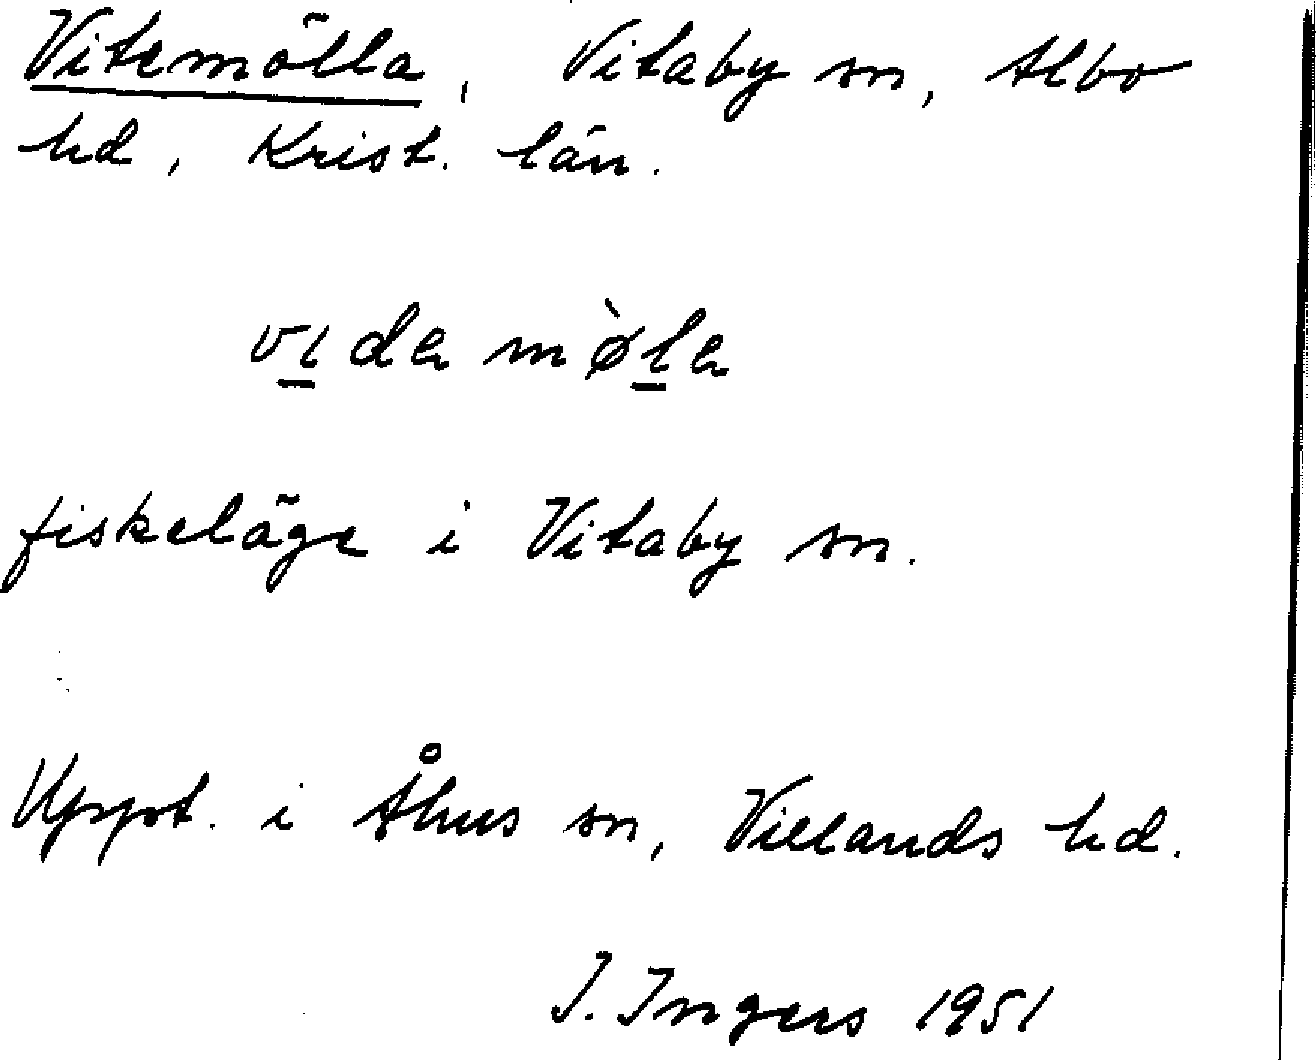 Vitemölla, Vitaby sn, Albo
hd, Krist. län.
vı̱da mø̀ḻa
fiskeläge i Vitaby sn.
Uppt. i Åhus sn, Villands hd.
I. Ingers 1951